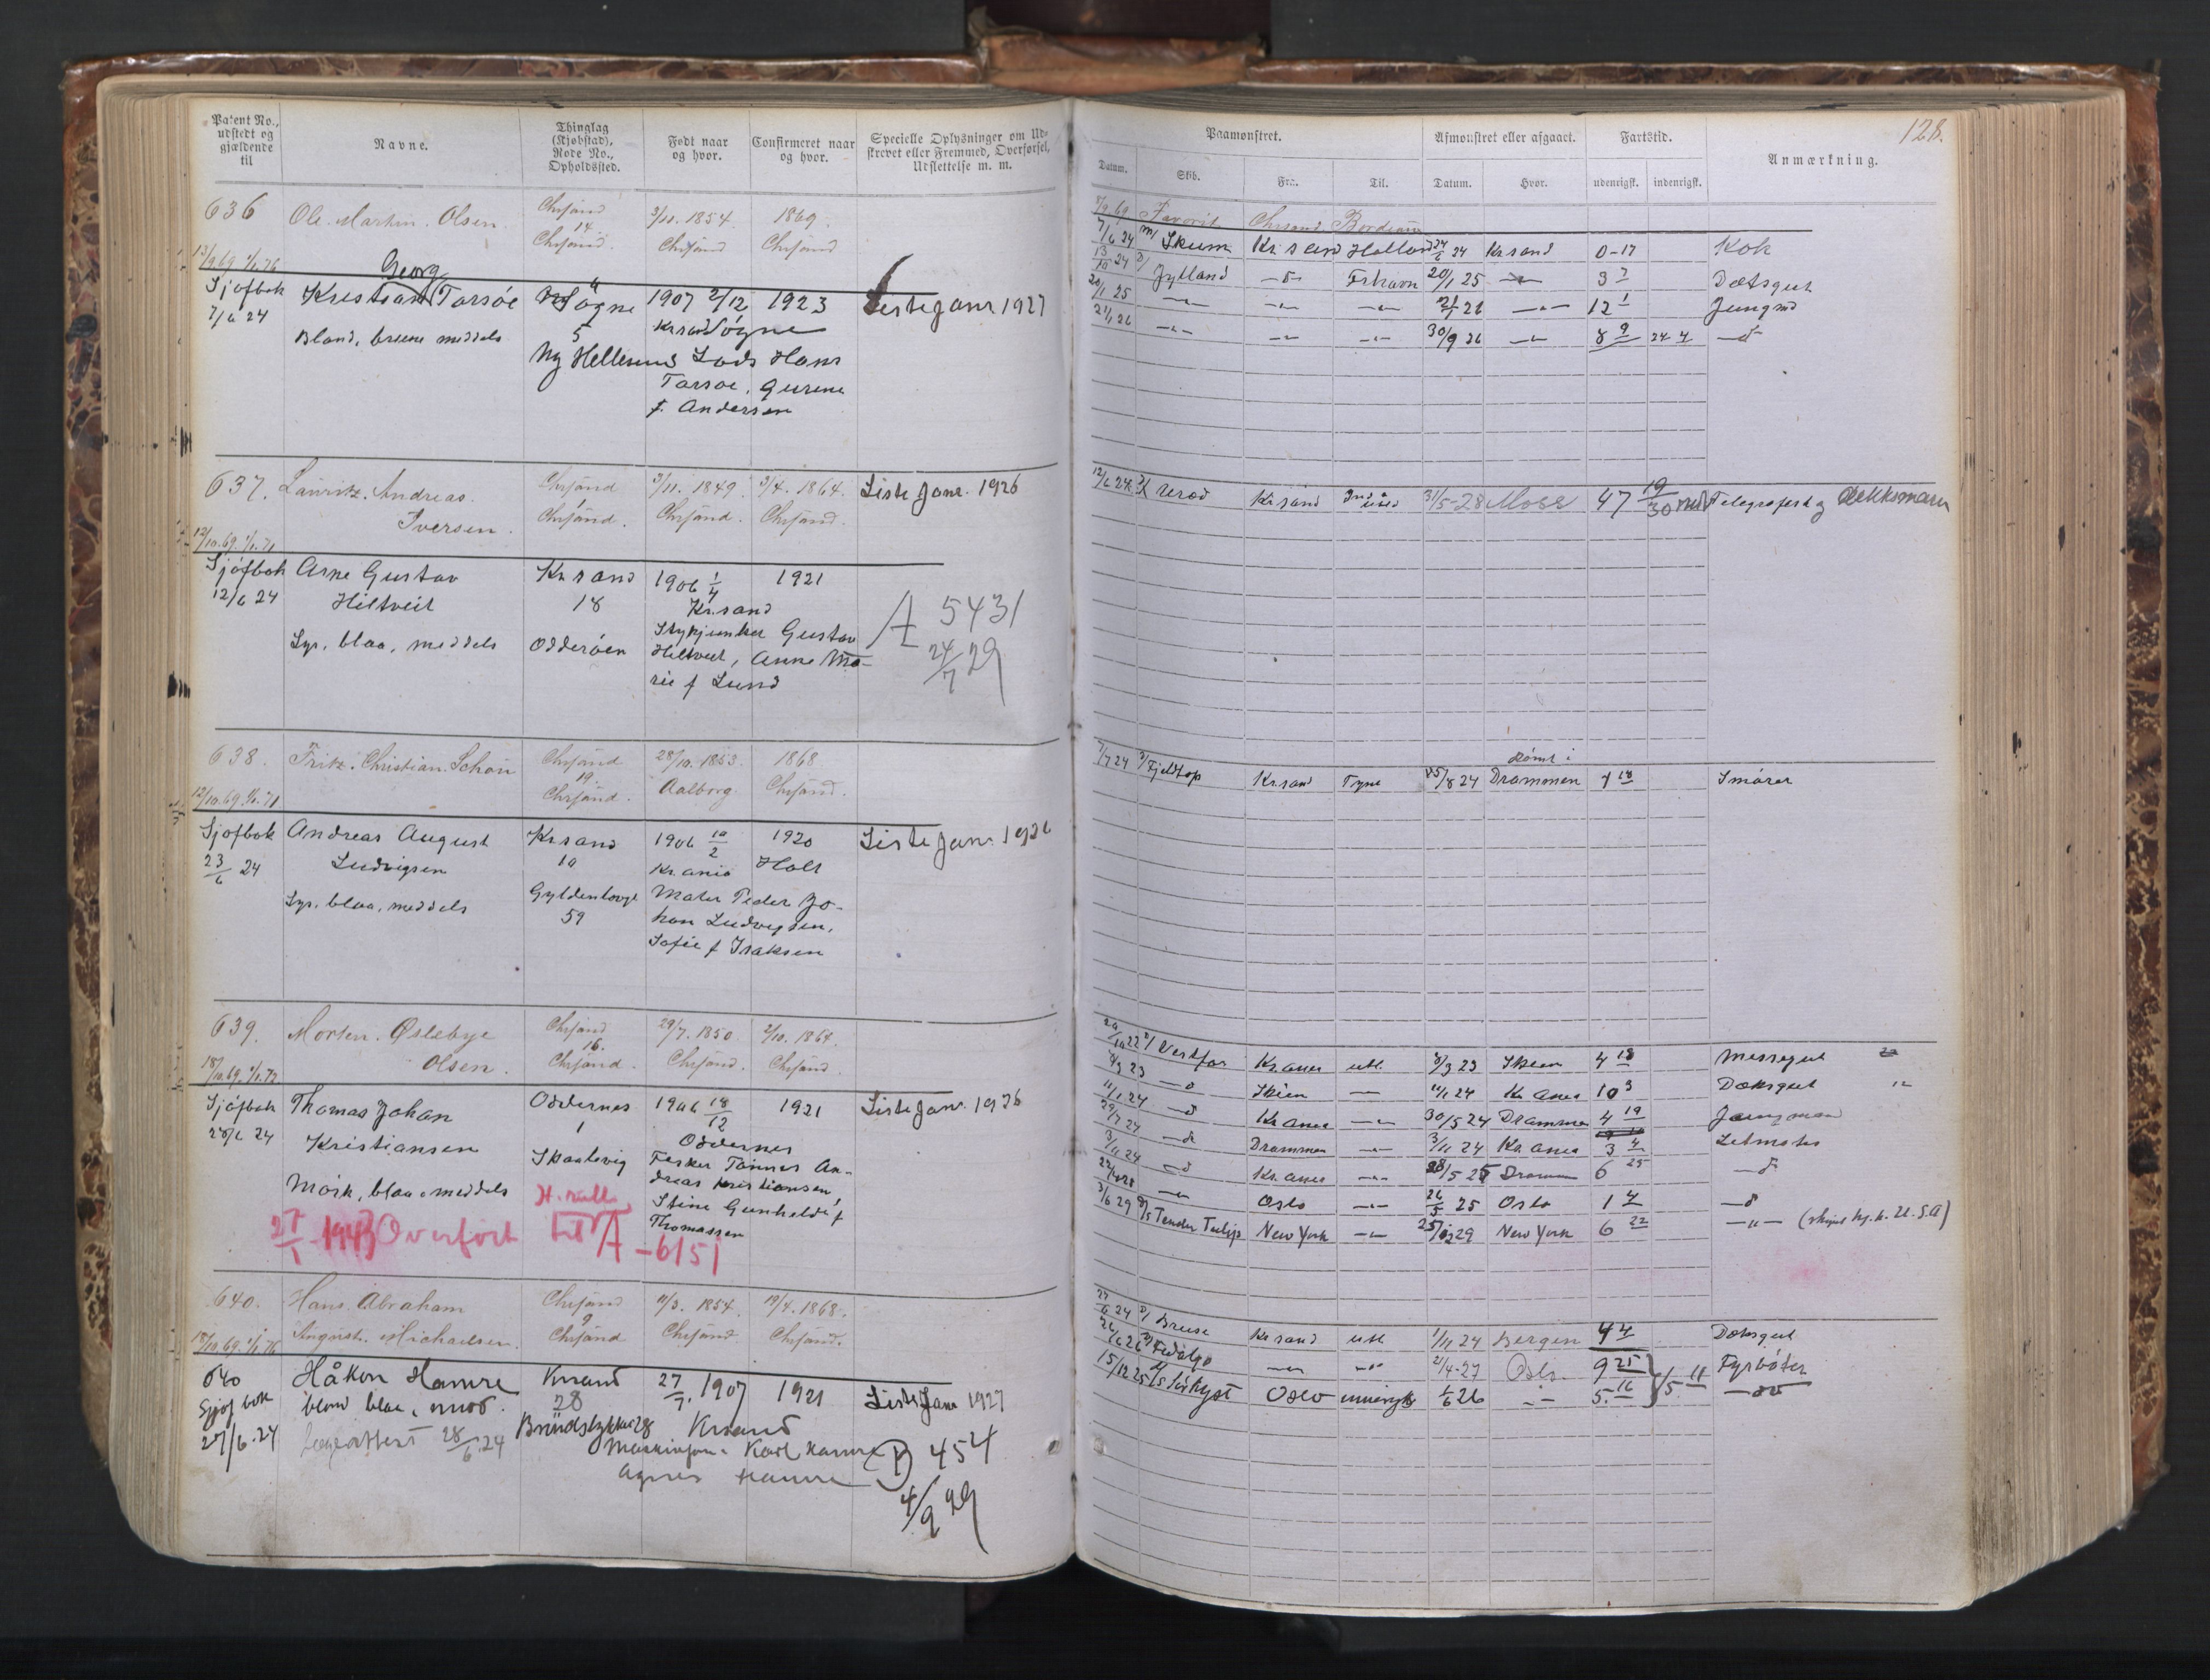 Patent No., udstedt og gjældende til
Navne.
Thinglag (Kjøbstad), Rode No., Opholdssted.
Født naar og hvor.
Confirmeret naar og hvor.
Specielle Oplysninger om Udskrevet eller Fremmed, Overførsel, Udslettelse m. m.
636 Ole Martin Olsen. Chrsand 3/11. 1854. 1869.
14
Chrsand. Chrsand Chrsand
13/9 69 1/1.76
Georg
Sjøfbok Kristian Tarsøe Søgne 1907 2/12 1923 Liste Janr 1927
7/6 24 5 Kr.sand Søgne
Bland, brune middels
Ny Hellesund Lods Hans
Tarsøe, Gurine
f. Andersen
637. Lauritz Andreas Chrsand 3/11. 1849. 3/4. 1864. Liste Janr. 1926
1
Iversen. Chrsand. Chrsand. Chrsand.
12/10.69. 1/1.71
Sjøfbok Arne Gustav Kr.sand 1906 1/4 1921
12/6 24 Hiltveit 18 Kr.sand
Lys, blaa, meddels Odderøen Stykjunker Gustav
Hiltveit, Anne Marie f Lund
A 5431
24/7 29
638. Fritz Christian Schøn Chrsand 28/10. 1853. 1868
19.
Chrsand. Aalborg. Chrsand.
12/10.69 1/1.71
Sjøfbok Andreas August Kr.sand 1906 10/2 1920 Liste Janr. 1926
23/6 24 Ludvigsen 10 Kr.ania Holt
Lys, blaa, meddels Gyldenløvgt 59
Maler Peder Johan Ludvigsen,
Sofie f Isaksen
639. Morten Øslebye Chrsand 29/7. 1850. 2/10. 1864.
16.
Olsen. Chrsand. Chrsand. Chrsand.
18/10.69. 1/1.72
Sjøfbok Thomas Johan Oddernes 1906 18/12 1921 Liste Janr. 1926
28/6 24 Kristiansen 1 Oddernes
Skaalevig Fisker Tønnes Andreas Kristiansen,
Mørk, blaa, meddels
Stine Gunhilde f
Thomassen
27/1 1943 Overført H. rulle til A - 6151
640. Hans Abraham Chrsand 11/3. 1854. 19/4. 1868.
9
August Michaelsen. Chrsand Chrsand Chrsand.
18/10.69. 1/1.76
640 Håkon Hamre Krsand 27/7. 1907 1921 Liste Janr 1927
Sjøf bok blond blaa, mid. 28 Krsand
27/6.24 Lægeattest 28/6.24
Karl Hamre
Agnes Hamre
B 454
4/9 29
128.
Paamønstret.
Afmønstret eller afgaaet.
Fartstid.
Anmærkning.
Datum. Skib. Fra. Til. Datum. Hvor. udenrigsk. indenrigsk.
7/9 69 Favorit Chrsand Bordeaux
7/6 24 M/ Skum Kr.sand Holland 24/6 24 Kr.sand 0-17 Kok
13/10 24 D/ Jylland -"- Frhavn 20/1 25 -"- 3 7 Dæksgut
20/1 25 -"- -"- -"- 2/1 26 -"- 12 1 Jungmd
2/1 26 -"- -"- -"- 30/9 26 -"- 8 9 24 4 -d-
12/6 24 Kr.sand 31/5-28 Moss 47 19/30 Telegrafist og Dekksmann
Rømt i
7/7 24 D/ Fjeldtop Kr.sand Tyne 25/8 24 Drammen 1 18 Smører
20/10 22 D/ Vestfos Kr.ania utl. 8/3 23 Skien 4 18 Messegut
8/3 23 -d- Skien -"- 11/1 24 Kr.ania 10 3 Dæksgut -"-
11/1 24 -d- Kr.ania -"- 30/5 24 Drammen 4 19 Jungmand
-d- Drammen -"- 3/11 24 Kr.ania 3 4 Letmatros
3/11 24 -d- Kr.ania -"- 28/5 25 Drammen 6 25 -d-
-"- Oslo -"- 26/5 25 Oslo 1 4 -d-
3/6 29 Tender Tulip New York -"- 29 New York 6 22 -"- (skipet hj.h. U.S.A)
27/6 24 D/ Bruse Kr.sand utl 1/11 24 Bergen 4 4 Dæksgut
26/6 26 Fidelio -"- -"- 2/4-27 Oslo 9 25 Fyrbøter
15/12 25 D/S Sørkyst Oslo innenrigs 1/6 26 -"- 5. 16 15 11 -do-